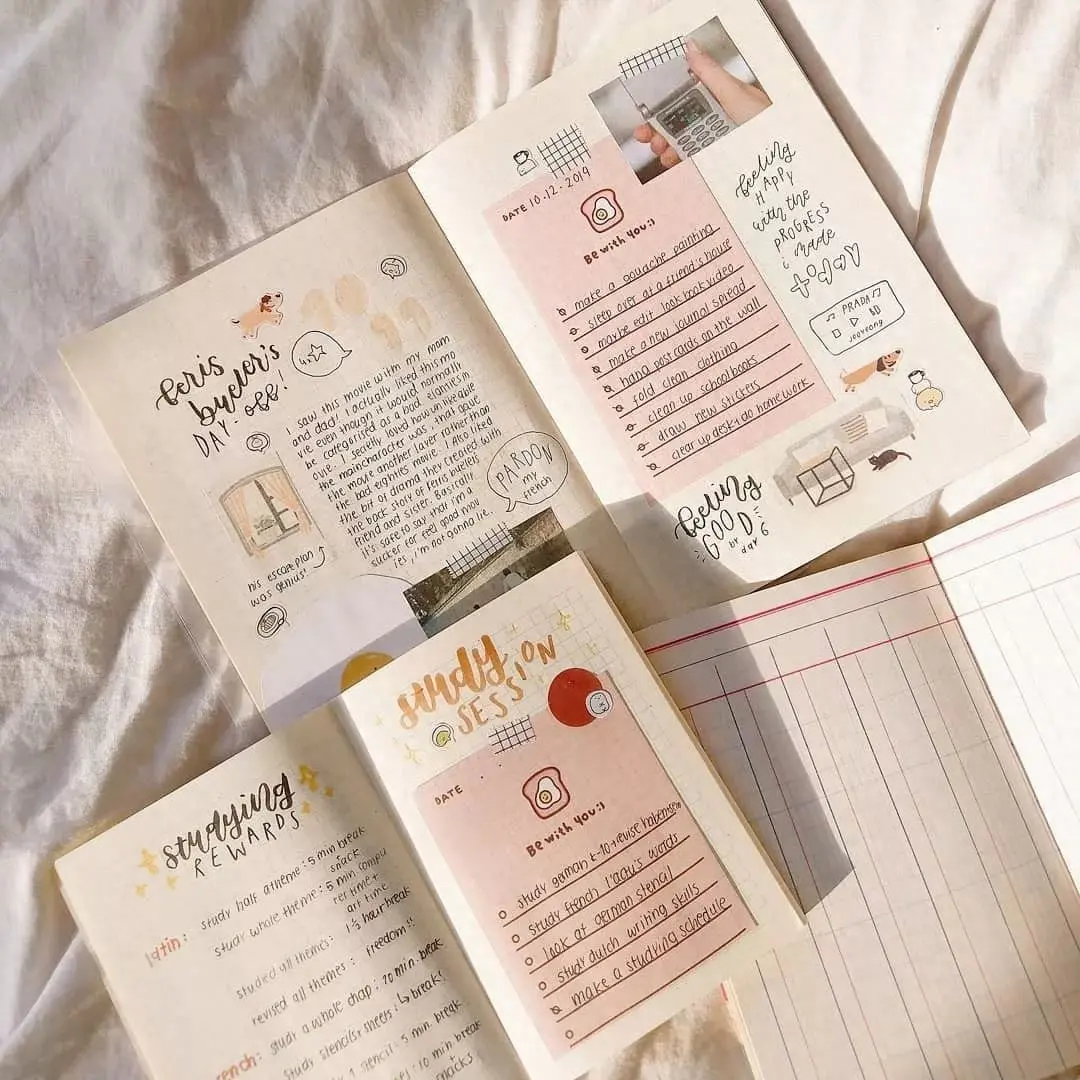 feris
bueler's
DAY-off!
4,5
I saw this movie with my mom
and dad. I actually liked this mo
vie even though it would normally
be categorised as a bad eighties m
ovie. I secretly loved how unlikeable
the maincharacter was, that gave
the movie another layer rather than
bad eighties movie. I also liked
the bit of drama they created with
the back story of Ferris buelers
friend and sister. Basically
it's safe to say that i'm a
sucker for feel good mov
ies, i'm not gonna lie.
PARDON
my
french
his escape plan
was genius!
DATE 10.12.2019
Be with you:)
make a gouache painting
sleep over at a friend's house
maybe edit lookbook video
make a new journal spread
hang postcards on the wall
fold clean clothing
clean up school books
draw new stickers
clear up desk + do homework
feeling
HAPPY
with the
PROGRESS
i made
PRADA
jooyoung
feeling
GOOD
day 6
studying
REWARDS
latin: study half a theme: 5 min break
snack
study whole theme: 5 min compu
ter time +
art time
studied all themes: 1 1/2 hour break
revised all themes: freedom!!
french: study a whole chap: 20 min. break
study stencils + sheets: break!
stencil: 5 min. break
10 min break
snacks
study
SESSION
DATE
Be with you:)
study german + revise
study french words
look at german stencil
study dutch writing skills
make a studying schedule